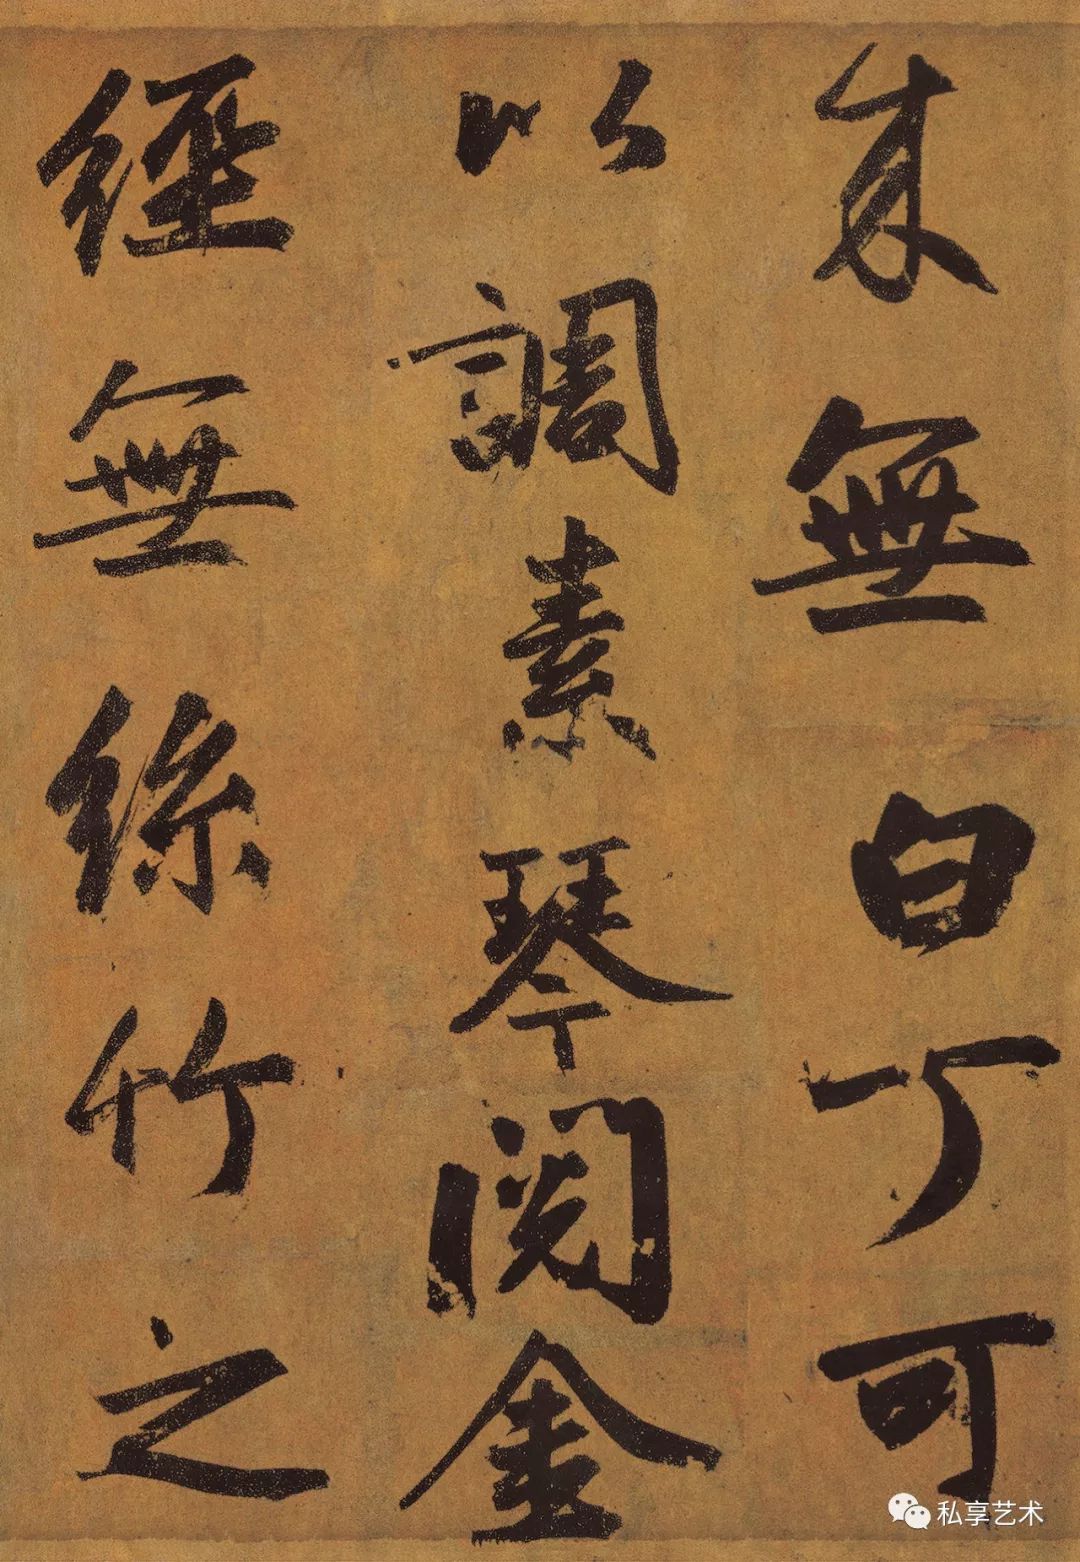 来無白丁可
以調素琴閱金
經無絲竹之
私享艺术